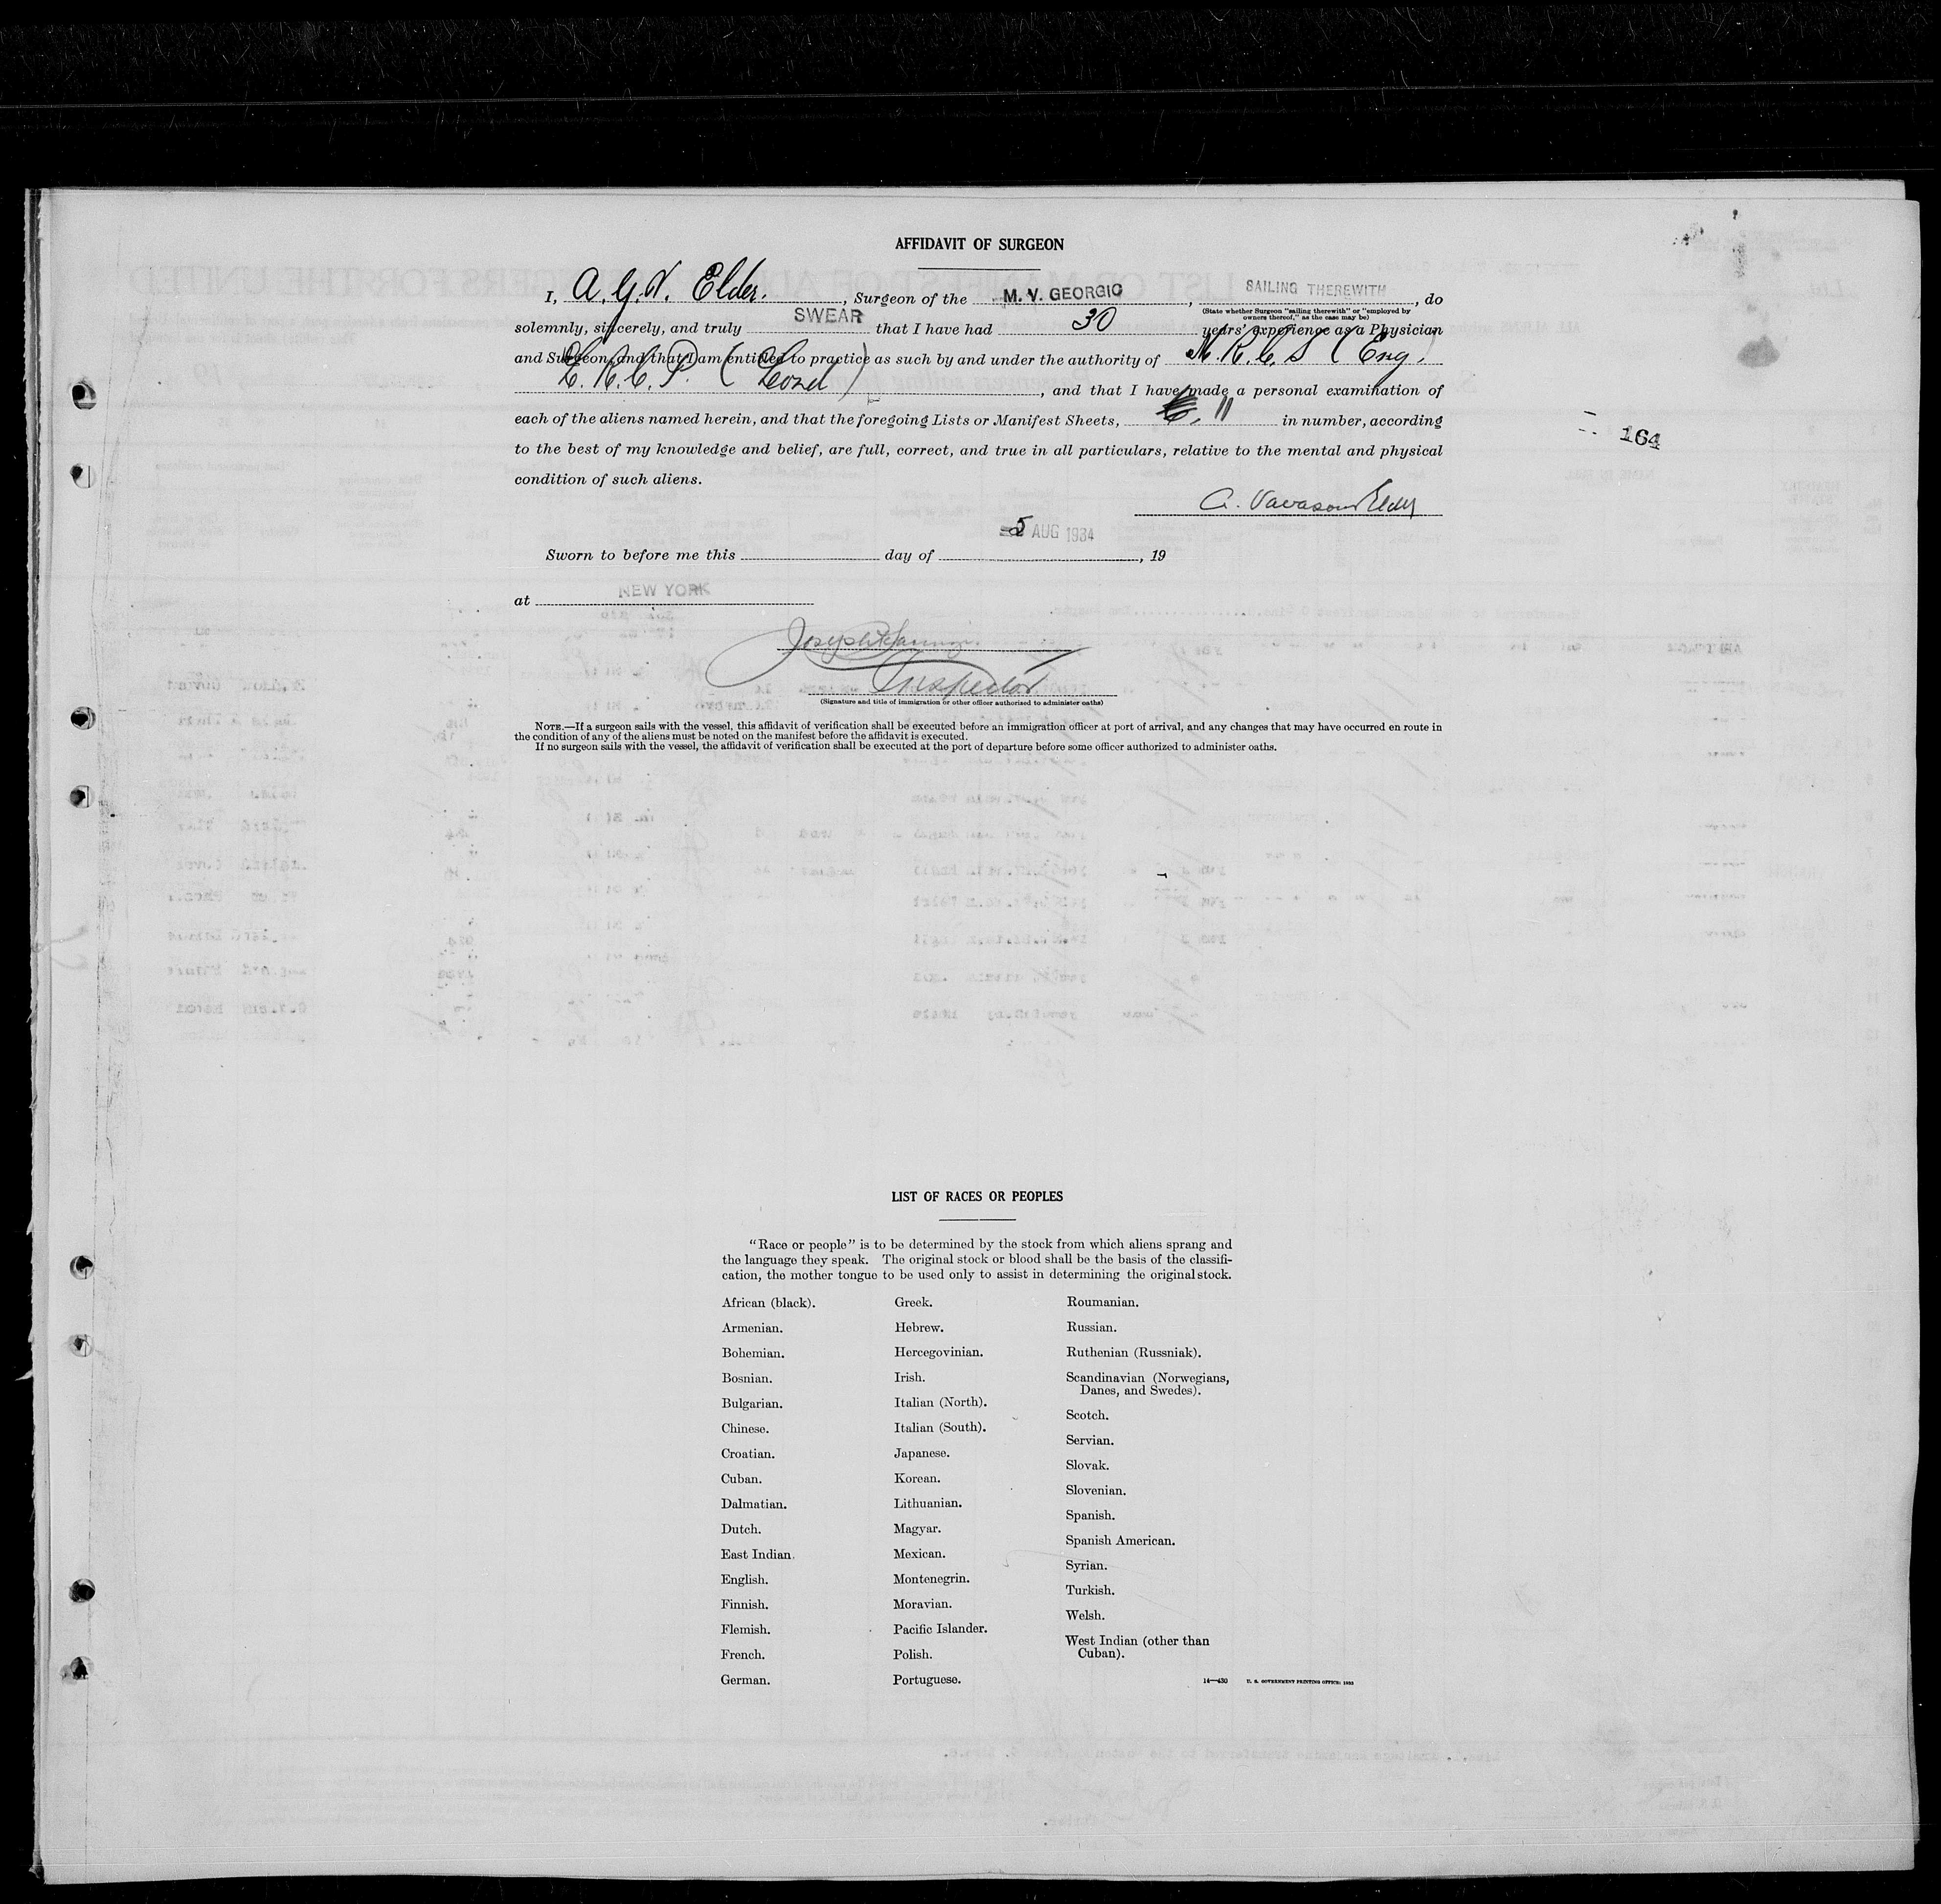 AFFIDAVIT OF SURGEON
I, A. G. V. Elder. , Surgeon of the M. V. GEORGIC , SAILING THEREWITH , do
(State whether Surgeon "sailing therewith" or "employed by
owners thereof," as the case may be)
solemnly, sincerely, and truly SWEAR that I have had 30 years' experience as a Physician
and Surgeon, and that I am entitled to practice as such by and under the authority of M. R. C. S (Eng.)
L. R. C. P. (Lond) , and that I have made a personal examination of
each of the aliens named herein, and that the foregoing Lists or Manifest Sheets, 11 in number, according
to the best of my knowledge and belief, are full, correct, and true in all particulars, relative to the mental and physical
condition of such aliens.
164
A. Vavasour Elder
5 AUG 1934
Sworn to before me this day of , 19
at NEW YORK
Joseph
Inspector
(Signature and title of immigration or other officer authorized to administer oaths)
NOTE.—If a surgeon sails with the vessel, this affidavit of verification shall be executed before an immigration officer at port of arrival, and any changes that may have occurred en route in
the condition of any of the aliens must be noted on the manifest before the affidavit is executed.
If no surgeon sails with the vessel, the affidavit of verification shall be executed at the port of departure before some officer authorized to administer oaths.
LIST OF RACES OR PEOPLES
"Race or people" is to be determined by the stock from which aliens sprang and
the language they speak. The original stock or blood shall be the basis of the classifi-
cation, the mother tongue to be used only to assist in determining the original stock.
African (black).
Armenian.
Bohemian.
Bosnian.
Bulgarian.
Chinese.
Croatian.
Cuban.
Dalmatian.
Dutch.
East Indian.
English.
Finnish.
Flemish.
French.
German.
Greek.
Hebrew.
Hercegovinian.
Irish.
Italian (North).
Italian (South).
Japanese.
Korean.
Lithuanian.
Magyar.
Mexican.
Montenegrin.
Moravian.
Pacific Islander.
Polish.
Portuguese.
Roumanian.
Russian.
Ruthenian (Russniak).
Scandinavian (Norwegians,
Danes, and Swedes).
Scotch.
Servian.
Slovak.
Slovenian.
Spanish.
Spanish American.
Syrian.
Turkish.
Welsh.
West Indian (other than
Cuban).
14—430 U. S. GOVERNMENT PRINTING OFFICE: 1933